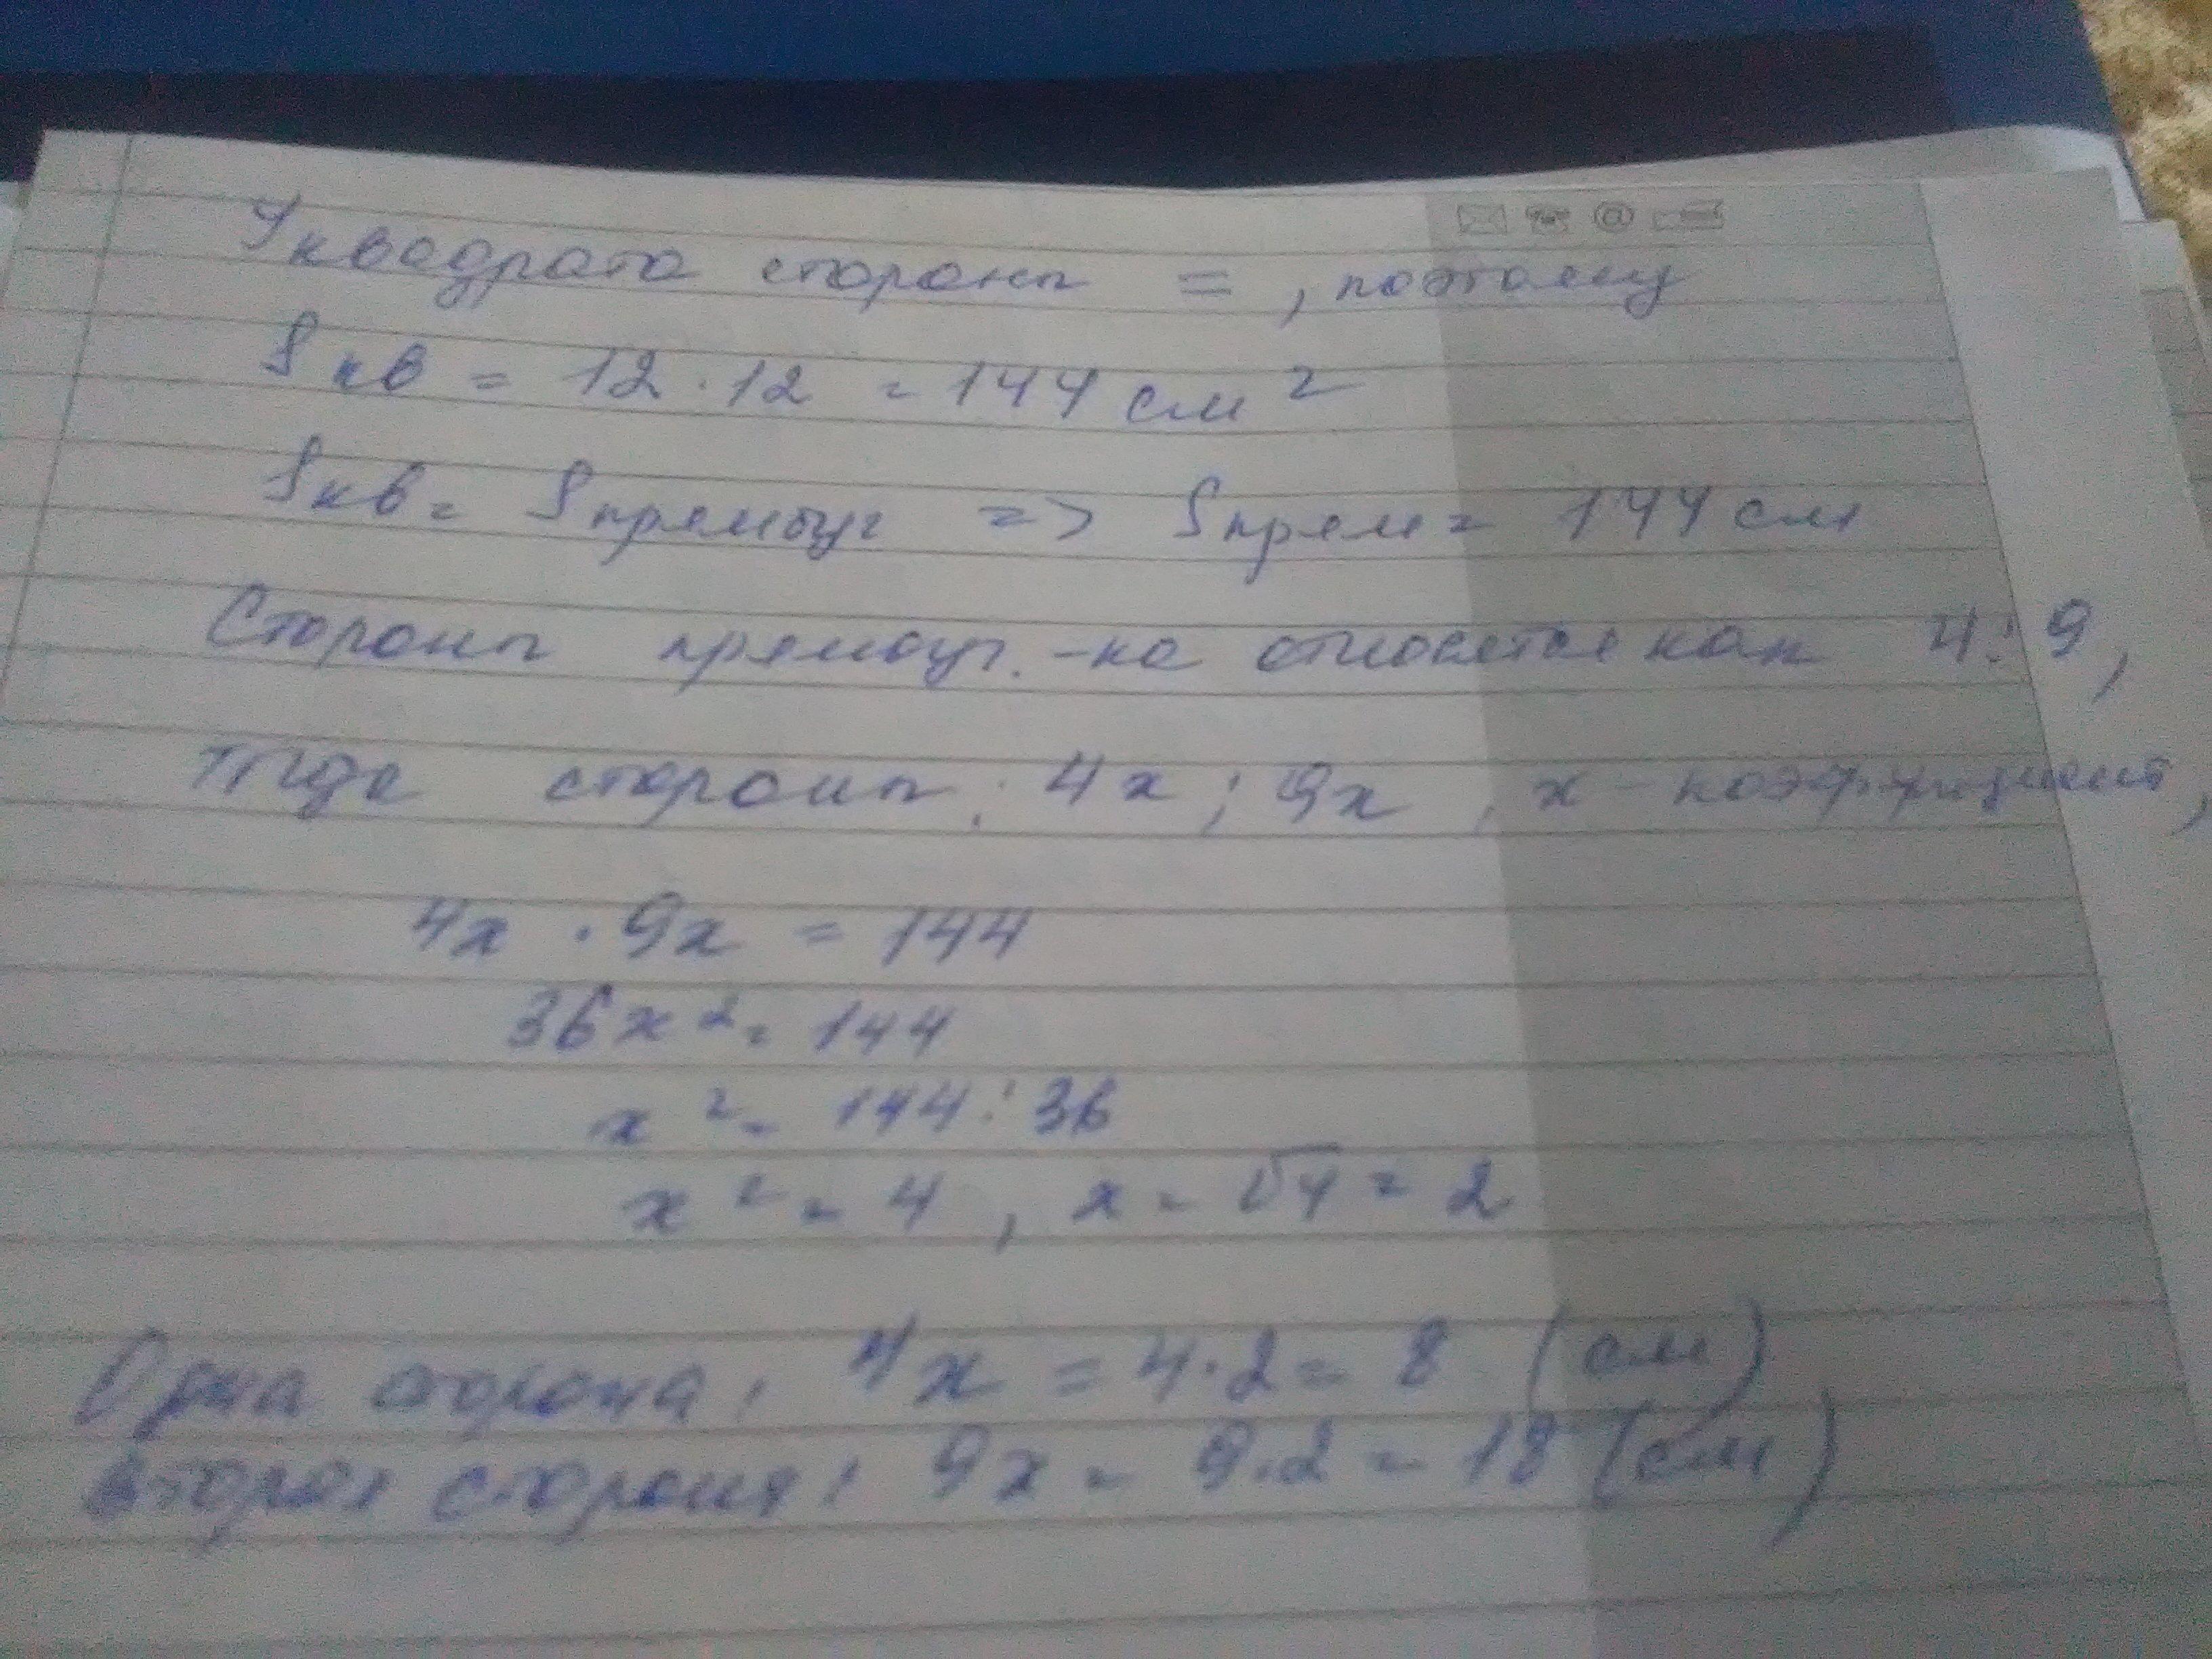 У квадрата стороны =, поэтому
Sкв = 12 · 12 = 144 см²
Sкв = Sпрямоуг => Sпрям = 144 см
Стороны прямоуг.-ка относятся как 4:9,
тгда стороны: 4x; 9x, x - коэффициент,
4x · 9x = 144
36x² = 144
x² = 144 : 36
x² = 4, x = √4 = 2
Одна сторона: 4x = 4·2 = 8 (см)
вторая сторона: 9x = 9·2 = 18 (см)